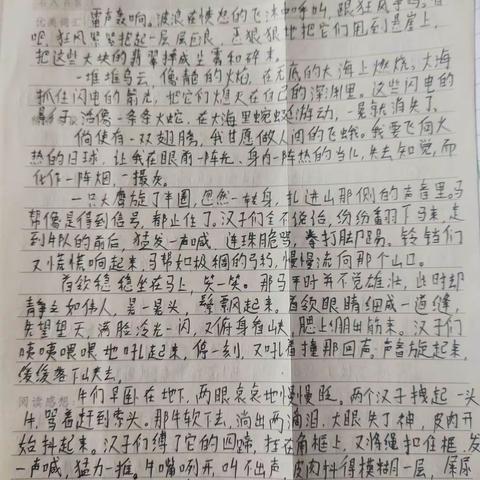 雷声轰响。波浪在愤怒的飞沫中呼叫，跟狂风争鸣。看
吧，狂风紧紧抱起一层层巨浪，恶狠狠地把它们甩到悬崖上，
把这些大块的翡翠摔成尘雾和碎末。
一堆堆乌云，像青色的火焰，在无底的大海上燃烧。大海
抓住闪电的箭光，把它们熄灭在自己的深渊里。这些闪电的
影子，活像一条条火蛇，在大海里蜿蜒游动，一晃就消失了。
倘使有一双翅膀，我甘愿做人间的飞蛾。我要飞向火
热的日球，让我在眼前一阵光、身内一阵热的当儿，失去知觉，而
化作一阵烟，一撮灰。
一只大鹰旋了半圈，忽然一转身，扎进山那侧的声音里。马
帮像是得到信号，都止住了。汉子们全不说话，纷纷翻下马来，走
到牛队的前后，猛发一声喊，连珠脆骂，拳打脚踢。铃铛们
又慌慌响起来，马帮如极稠的粥，慢慢流向那个山口。
首领稳稳坐在马上，笑一笑。那马平时并不觉雄壮，此时却
静立如伟人，晃一晃头，鬃飘起来。首领眼睛细成一道缝，
先望望天，满脸冷光一闪，又俯身看峡，腮上绷出筋来。汉子们
咦咦喂喂地吼起来，停一刻，又吼着撞那回声。声音旋起来，
缓缓落下峡去。
阅读感想：
牛们早卧在地下，两眼哀哀地慢慢眨。两个汉子拽起一头
牛，骂着赶到索头。那牛软下去，淌出两滴泪，大眼失了神，皮肉开
始抖起来。汉子们缚了它的四蹄，挂在角框上，又将绳扣住框，发
一声喊，猛力一推。牛嘴咧开，叫不出声，皮肉抖得模糊一层，屎尿